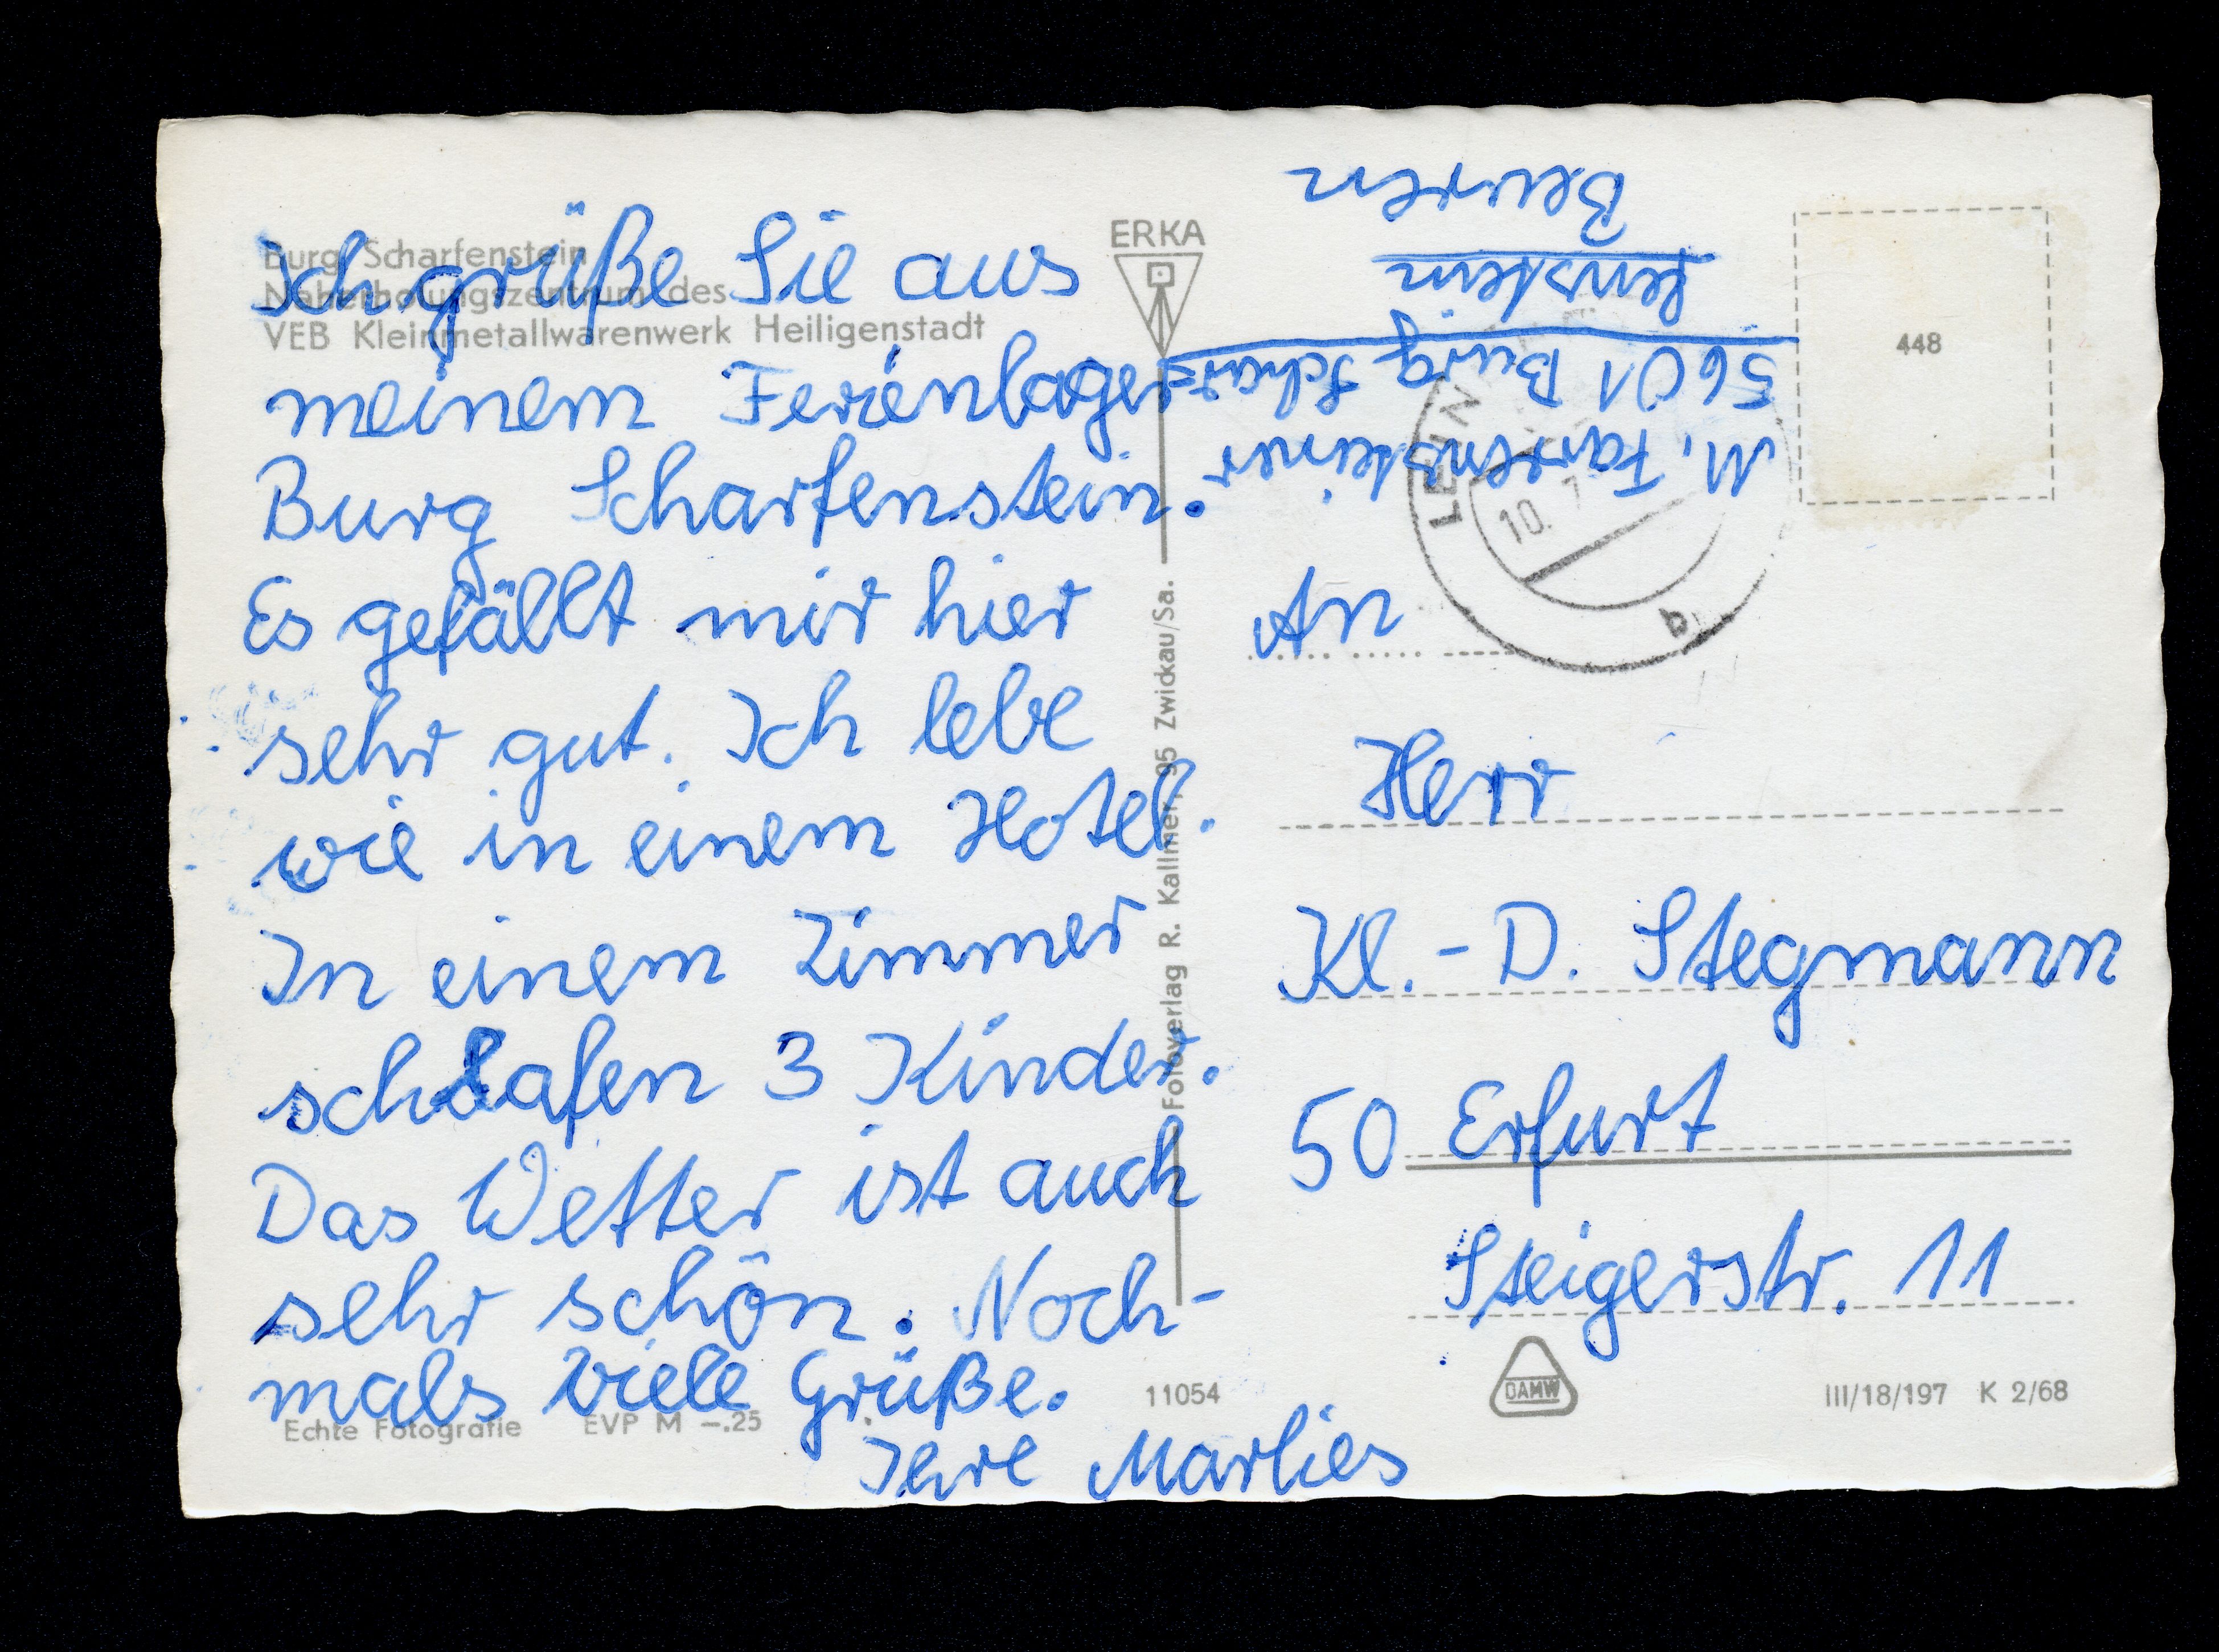 Burg Scharfenstein
Naherholungszentrum des
VEB Kleinmetallwarenwerk Heiligenstadt
Ich grüße Sie aus
meinem Ferienlager
Burg Scharfenstein.
Es gefällt mir hier
sehr gut. Ich lebe
wie in einem Hotel.
In einem Zimmer
schlafen 3 Kinder.
Das Wetter ist auch
sehr schön. Noch-
mals viele Grüße.
Ihre Marlies
Echte Fotografie EVP M -.25
ERKA
Fotoverlag R. Kallmer, 95 Zwickau/Sa.
11054
M.
5601 Burg Scharf=
fenstein
Beuren
448
LEIN
10. 7
b
An
Herr
Kl.-D. Stegmann
50 Erfurt
Steigerstr. 11
DAMW
III/18/197 K 2/68